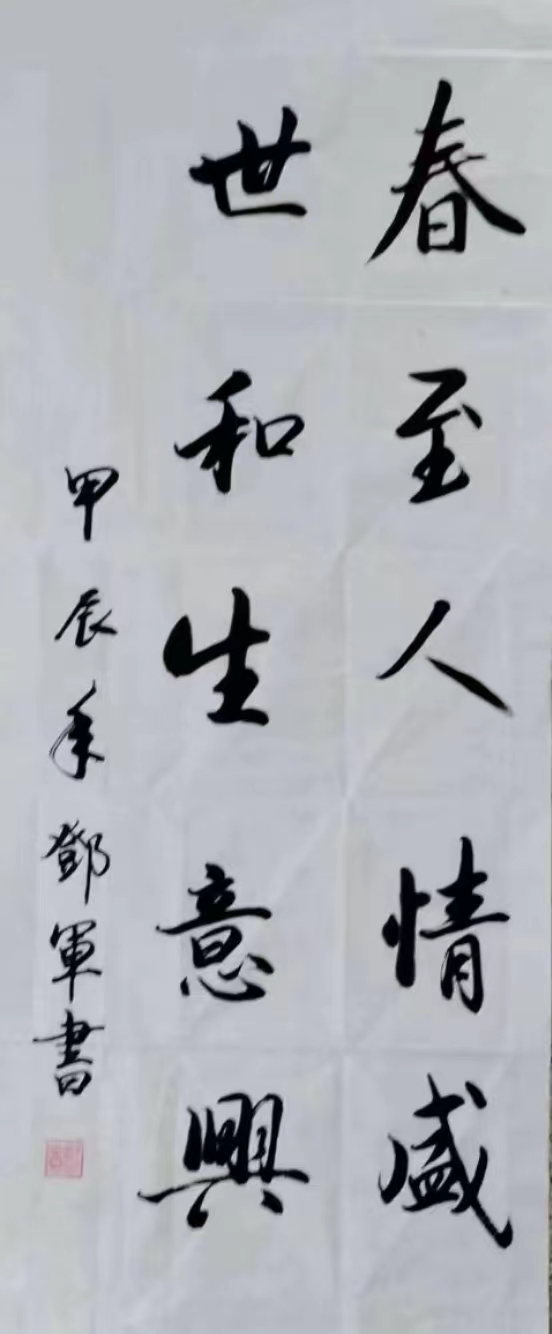 春至人情盛
世和生意興
甲辰年鄧軍書